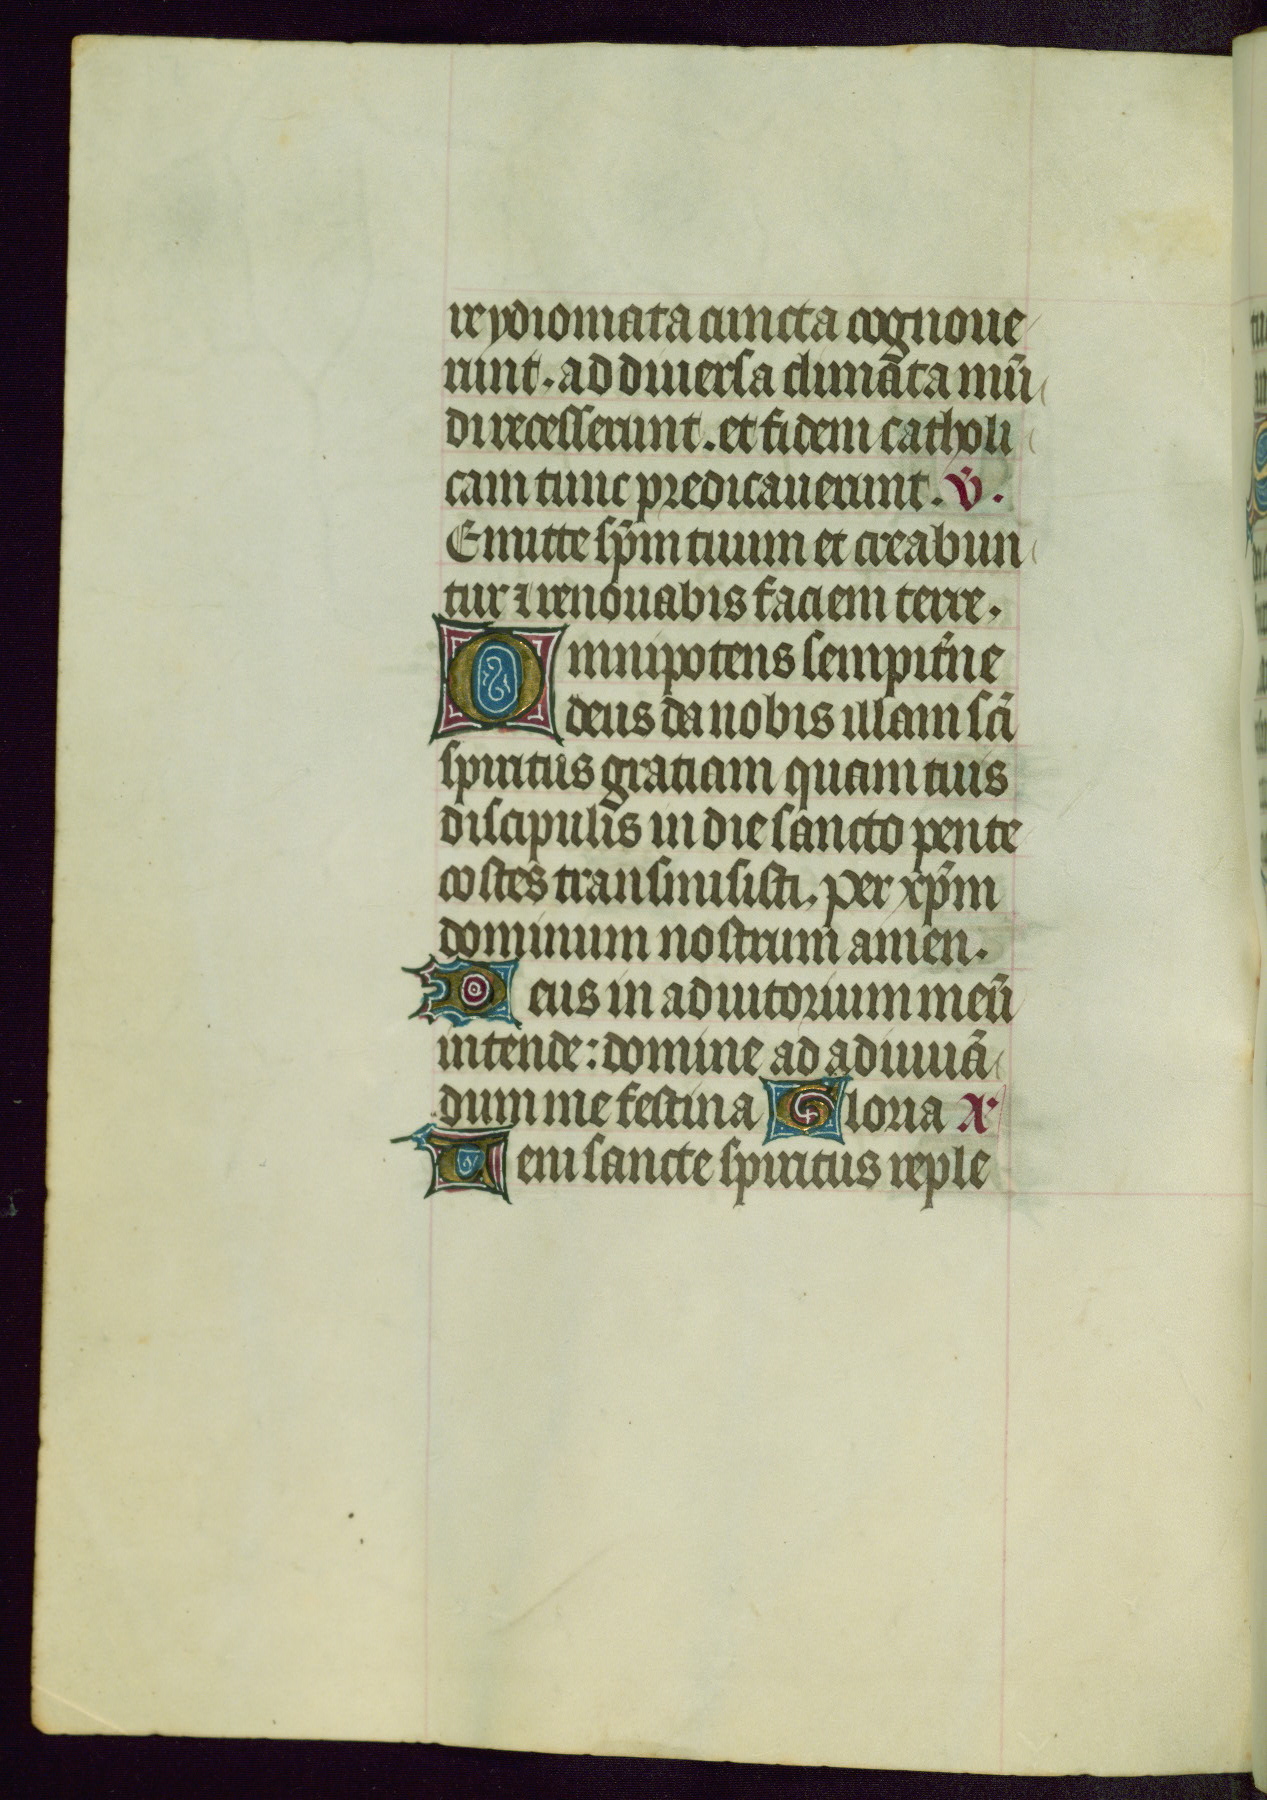 re ydiomata cuncta cognoue
runt. ad diuersa climāta mū
di recesserunt. et fidem catholi
cam tunc predicauerunt. v̄.
Emitte sp̄m tuum et creabun
tur ⁊ renouabis faciem terre.
Omnipotens sempit̄ne
deus da nobis illam sc̄i
spiritus gratiam quam tuis
discipulis in die sancto pente
costes transmisisti. per xp̄m
dominum nostrum amen.
Deus in adiutorium meū
intende: domine ad adiuuā
dum me festina Gloria X
Veni sancte spiritus reple